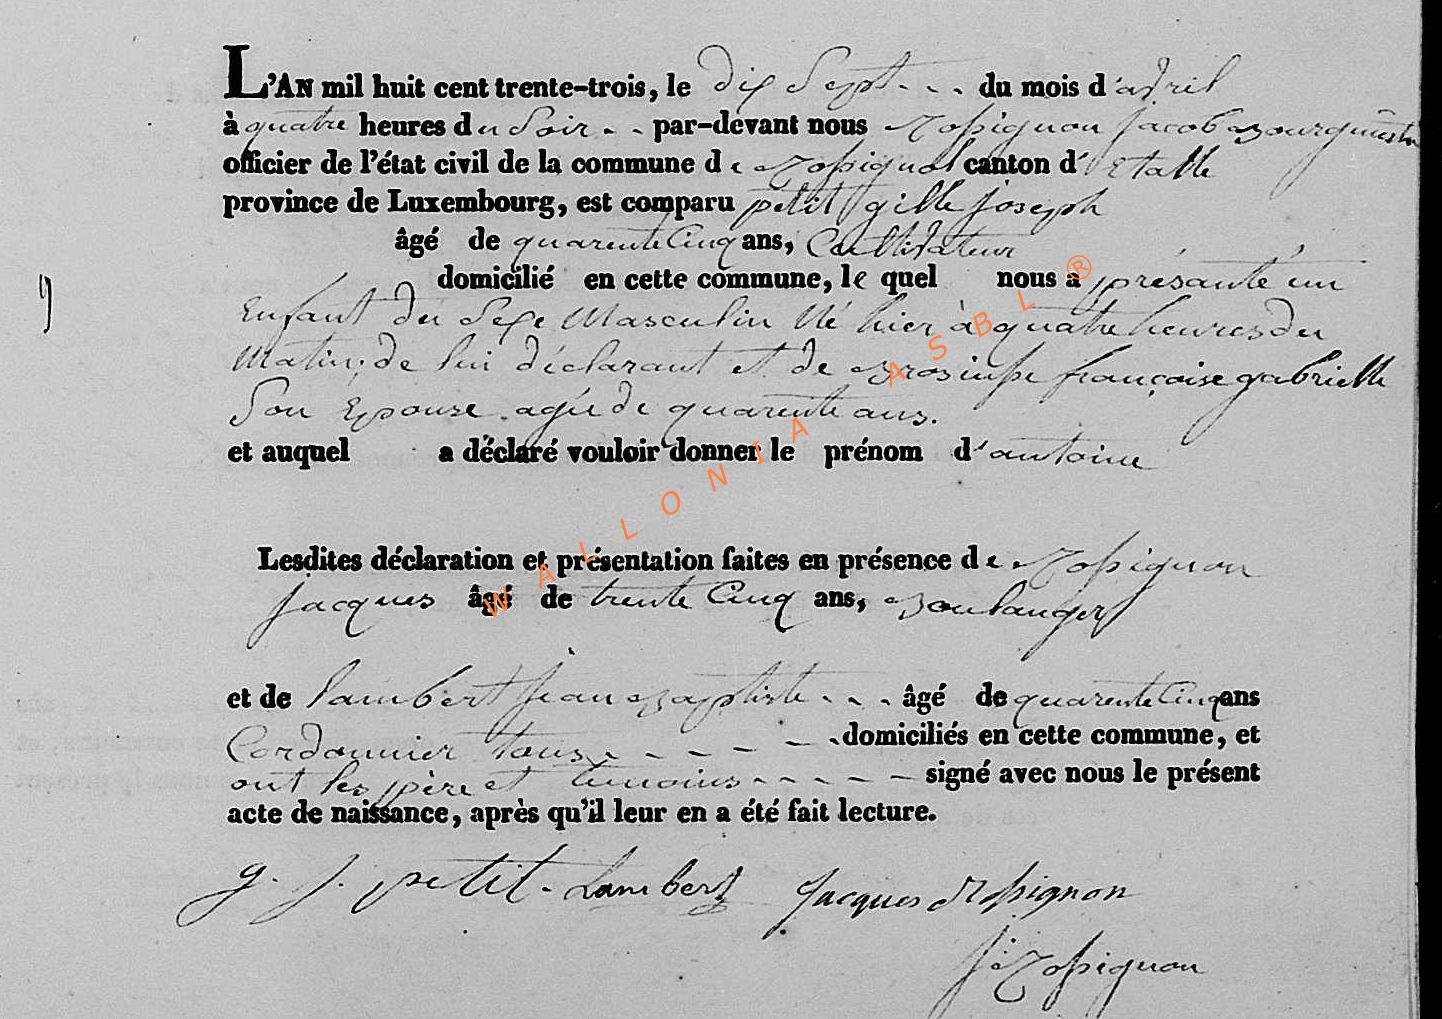 L'AN mil huit cent trente-trois, le dix Sept - - - du mois d'avril
à quatre heures du Soir - - par-devant nous Rossignon Jacob Bourguestre
officier de l'état civil de la commune de Rossignol canton d'Etalle
province de Luxembourg, est comparu petit gille joseph
âgé de quarente Cinq ans, Cultivateur
domicilié en cette commune, le quel nous a présanté un
9
Enfant du Sexe Masculin Né hier à quatre heures du
Matin; de lui déclarant et de françoise gabrielle
Son Epouse agée de quarente ans.
et auquel a déclaré vouloir donner le prénom d'antoine
Lesdites déclaration et présentation faites en présence de Rossignon
Jacques âgé de trente Cinq ans, Boulanger
et de lambert jean Baptiste - - - âgé de quarente Cinq ans
Cordonnier tous - - - - - domiciliés en cette commune, et
ont les père et temoins - - - - - signé avec nous le présent
acte de naissance, après qu'il leur en a été fait lecture.
g. j. petit - Lambert Jacques Rossignon
J. Rossignon
WALLONIA ASBL ®